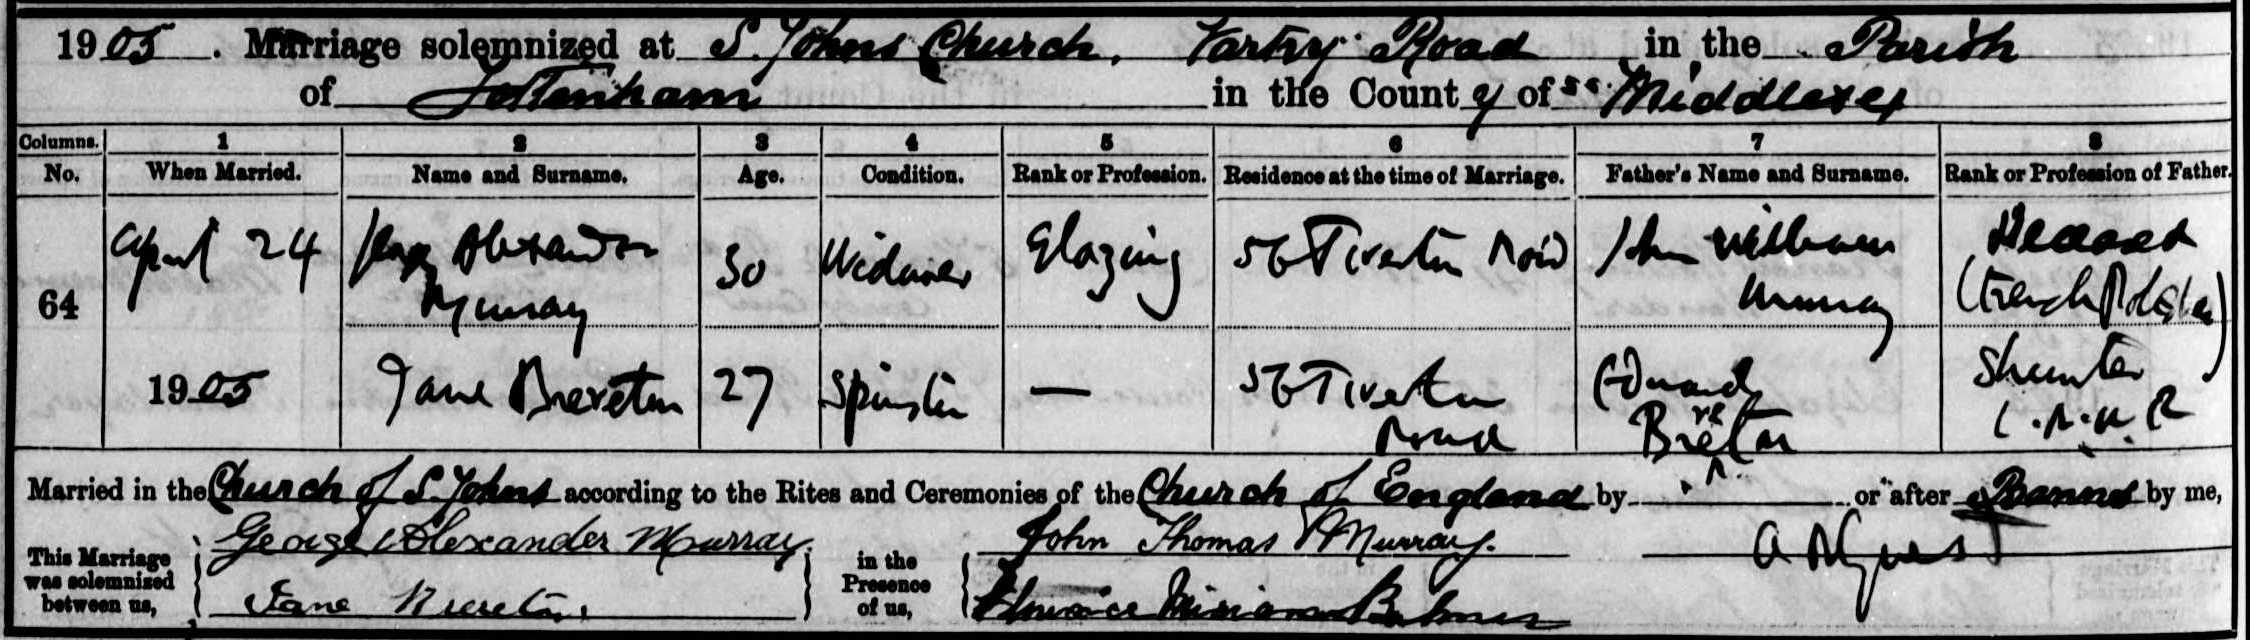 1905. Marriage solemnized at S. Johns Church, Vartry Road in the Parish
of Tottenham in the County of Middlesex
Columns. 1 2 3 4 5 6 7 8
No. When Married. Name and Surname. Age. Condition. Rank or Profession. Residence at the time of Marriage. Father's Name and Surname. Rank or Profession of Father.
64 April 24 George Alexander 30 Widower Glazing 56 Tiverton Road John William Deceased
Murray Murray (French Polisher)
1905 Jane Brereton 27 Spinster — 56 Tiverton Edward Shunter
Road Brereton L.N.W.R
Married in the Church of S. Johns according to the Rites and Ceremonies of the Church of England by or after Banns by me,
This Marriage was solemnized between us, George Alexander Murray in the Presence of us, John Thomas Murray.
Jane Brereton Florence Miriam